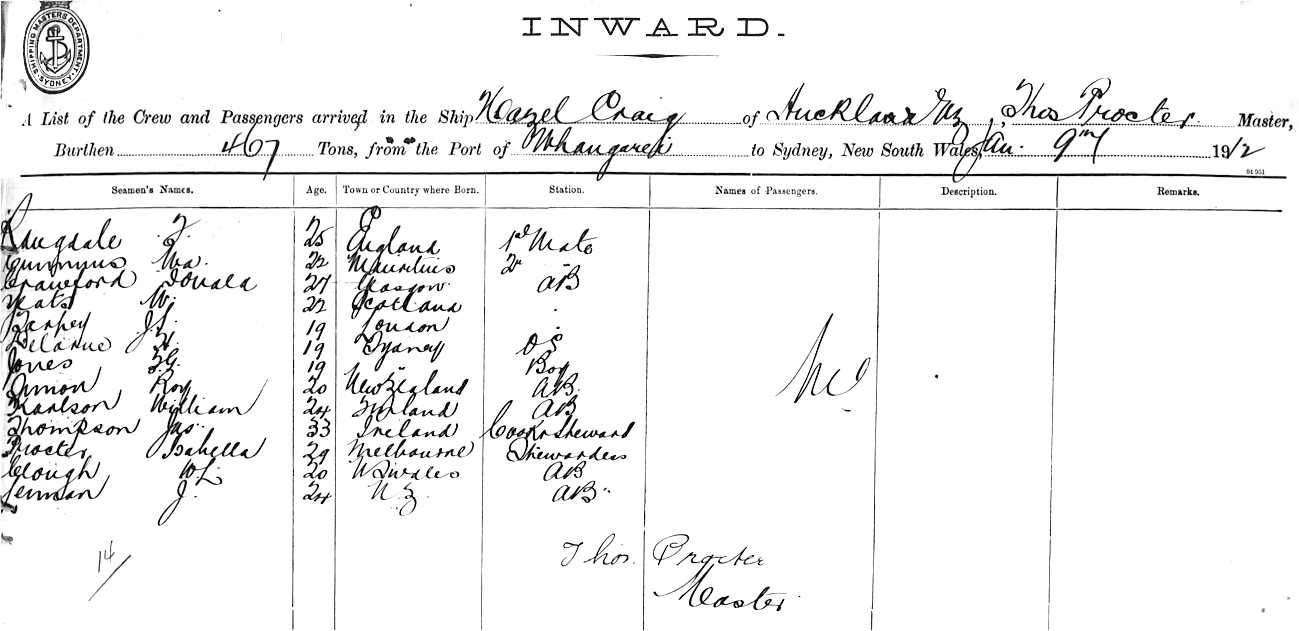 SHIPPING MASTERS DEPARTMENT
SYDNEY
INWARD.
A List of the Crew and Passengers arrived in the Ship Hazel Craig of Auckland NZ, Thos Procter Master,
Burthen 467 Tons, from the Port of Whangarei to Sydney, New South Wales, Jan. 9th 1912
Seamen's Names. Age. Town or Country where Born. Station. Names of Passengers. Description. Remarks.
Langdale 25 England 1st Mate
Wm. 22 Mauritius 2nd
Crawford Donald 27 Glasgow AB
Yeats W. 22 Scotland
19 London
Delarue H. 19 Sydney OS
Jones 19 Boy
Roy 20 New Zealand AB
Karlson William 24 Finland AB
Nil
Thompson Jas. 33 Ireland Cook & Steward
Procter Isabella 29 Melbourne Stewardess
Clough WL 20 AB
J. 24 NZ. AB
14/
Thos. Procter
Master